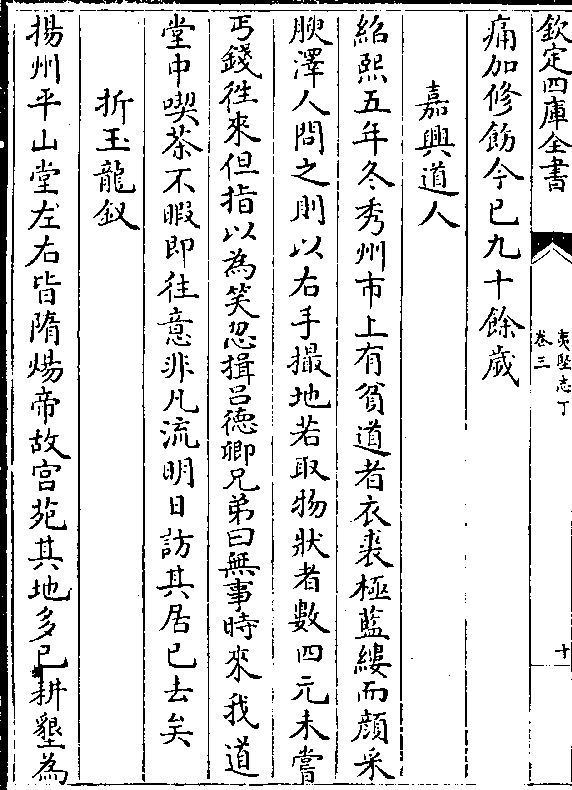 欽定四庫全書
夷堅志丁
卷三
十
痛加修飭今已九十餘歲
嘉興道人
紹熙五年冬秀州市上有貧道者衣裘極藍縷而顔采
腴澤人問之則以右手撮地若取物狀者數四元未嘗
丐錢徃來但指以為笑忽揖吕德卿兄弟曰無事時來我道
堂中喫茶不暇即往意非凡流明日訪其居已去矣
折玉龍釵
揚州平山堂左右皆隋煬帝故宫苑其地多已耕墾為